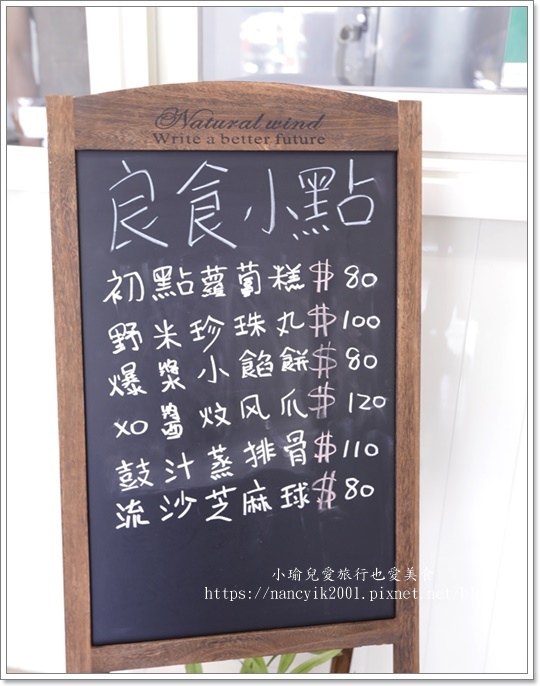 Natural wind
Write a better future
良食小點
初點蘿蔔糕 $ 80
野米珍珠丸 $ 100
爆漿小餡餅 $ 80
XO醬炆风爪 $ 120
鼓汁蒸排骨 $ 110
流沙芝麻球 $ 80
小瑜兒愛旅行也愛美食
https://nancyik2001.pixnet.net/